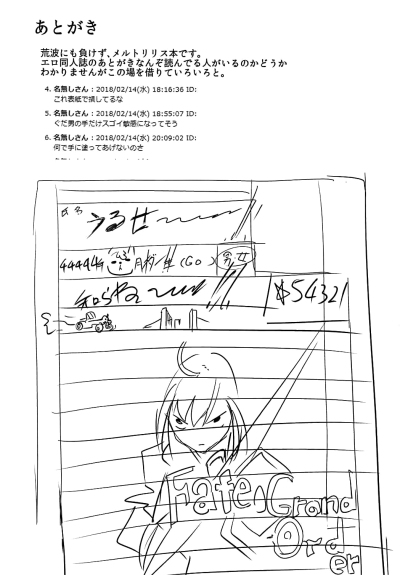 あとがき
荒波にも負けず、メルトリリス本です。
エロ同人誌のあとがきなんぞ読んでる人がいるのかどうか
わかりませんがこの場を借りていろいろと。
4. 名無しさん : 2018/02/14(水) 18:16:36 ID:
これ表紙で損してるな
5. 名無しさん : 2018/02/14(水) 18:55:07 ID:
ぐだ男の手だけスゴイ敏感になってそう
6. 名無しさん : 2018/02/14(水) 20:09:02 ID:
何で手に塗ってあげないのさ
うるせ
男 女
知らね
54321
Fate
Grand
Ord
er